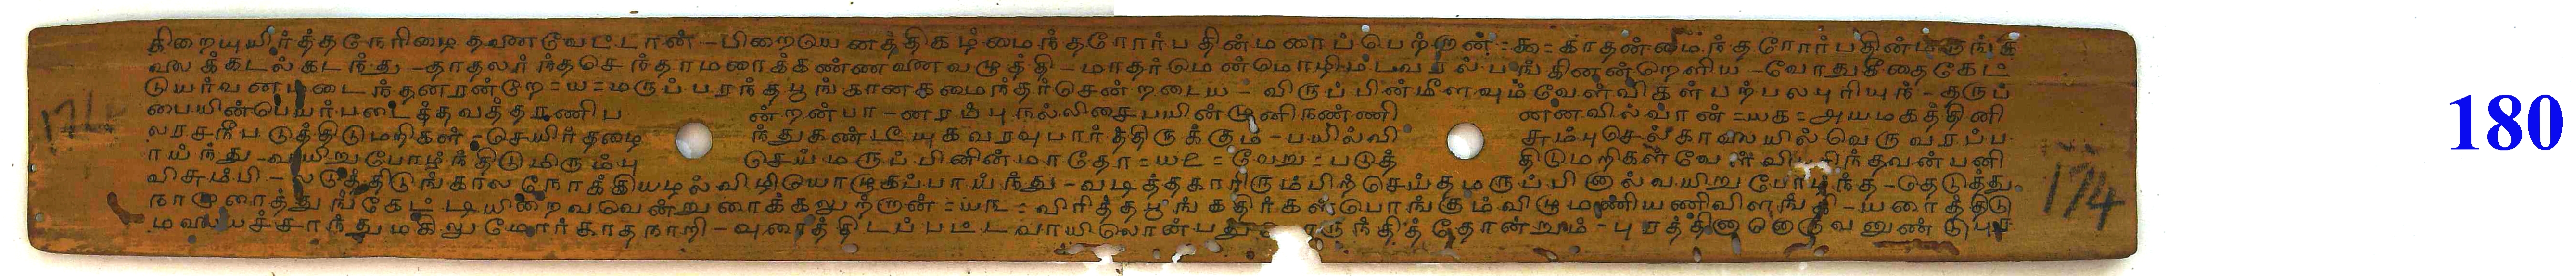 திறையுயிர்த்தநேரிழை தவணவேட்டான் - பிறைடுயனத்திகழ் மைந்தரோர்பதின்மரைப்பெற்றான் = கூ = காதன்மைந்தரோர்பதின்மருங்க
வலக்கடல்கடந்து - தாதலர்ந்தசெந்தாமரைக்கண்ணவணவழுத்தி - மாதர்டுமன்மொழிமடவரல்பங்கினன்றெளிய - வோதுகீதைகேட்
டுயர்வனமடைந்தனரன்றே = ய = மருப்பரந்தபூங்கானகமைந்தர்சென்றடைய - விருப்பின்மீளவும்வேள்விகள்பற்பலபுரியுந் - தருப்
பையின்பெயர்படைத்தவத்தரணிப ன்றன்பா - னரம்புநல்லிசைபயின்முனிநண்ணி னனவில்வான் = யக = அயமகத்தினி
லரசநீபடுத்திடுமறிகள் - செயிர்தழை ந்துகண்டீயுகவரவுபார்த்திருக்கும் - பயில்வி சும்புசெல்காலையில்வெருவரப்ப
ாய்ந்து - வயிறுபோழ்ந்திடுமிரும்பு செய்மருப்பினின்மாதோ = ய௨ = வேறு = படுத் திடுமறிகள்வேள்விபுரிந்தவன்பனி
விசும்பி - லடுத்திடுங்காலநோக்கியழல்விழியொழுகப்பாய்ந்து - வடித்தகாரிரும்பிற்செய்தமருப்பினால்வயிறுபோழ்ந்த - தெடுத்து
நாமுரைத்துங்கேட்டியிறைவவென்றுரைக்கலுற்றான் = ய௩ = விரித்தபூங்கதிர்கள்பொங்கும்விழுமணியணிவிளங்கி - யரைத்திடு
மலயச்சாந்துமகிறுமோர்காதநாறி - வுரைத்திடப்பட்டவாயிலொன்பது ருந்தித்தோன்றும் - புரத்தினுளெருவனுண்டுபுர
174
174
180